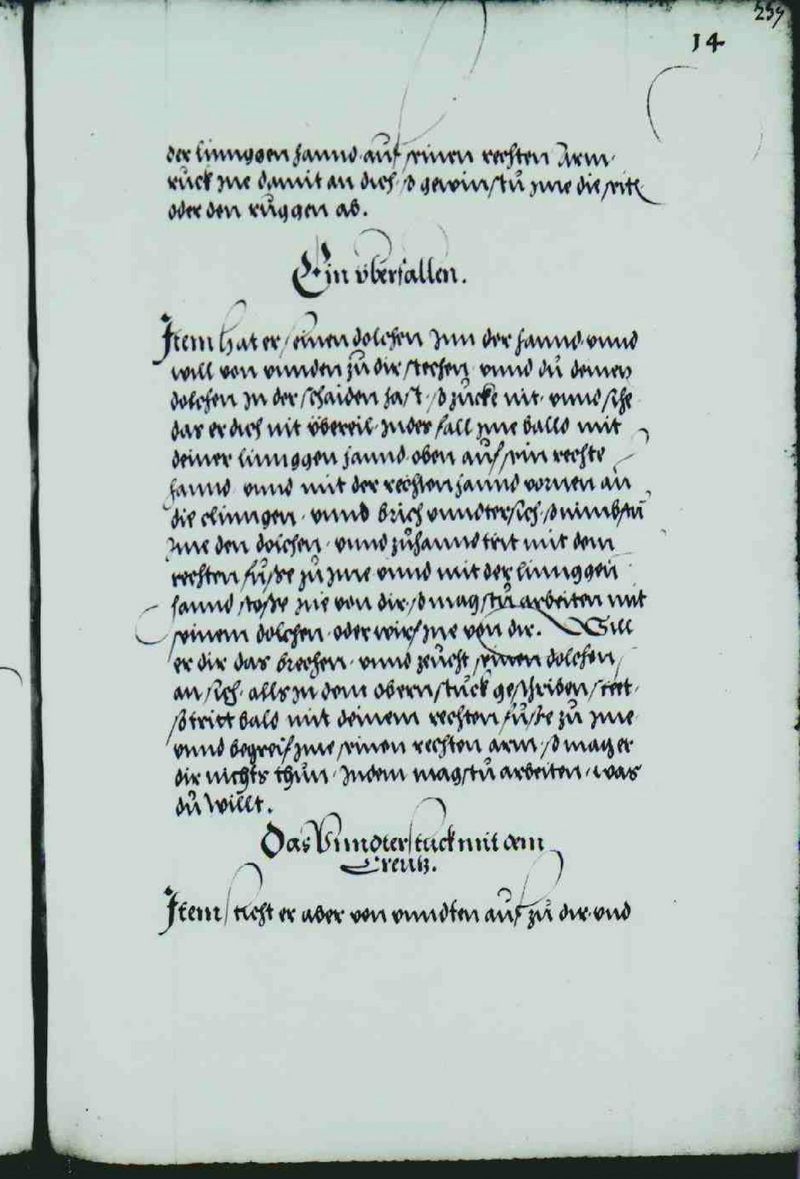 239
14
der linnggen hannd auf seinen rechten Arm
ruck jne damit an dich so gewinstu jne die seite
oder den ruggen ab.
Ein überfallen.
Item hat er seinen dolchen jnn der hannd vnnd
will von vnnden zu dir stechen vnnd du deinen
dolchen jn der schaiden hast so zucke nit vnnd sihe
das er dich nit übereil jndes fall jme balld mit
deiner linnggen hannd oben auf sein rechte
hannd vnnd mit der rechten hannd vornen an
die clinngen vnnd brich vnndersich so nimbstu
jme den dolchen vnnd zuhannd trit mit dem
rechten fusse zu jme vnnd mit der linnggen
hannd stosse jne von dir so magstu arbeiten mit
seinem dolchen oder wirf jne von dir. Will
er dir das brechen vnnd zeucht seinen dolchen
an sich alls jn dem obern stuck geschriben steet
so tritt bald mit deinem rechten fusse zu jme
vnnd begreif jme seinen rechten arm so mag er
dir nichts thun jndem magstu arbeiten was
du willt.
Das Vnnderstuck mit dem
Creutz.
Item sticht er aber von vnndten auf zu dir vnd